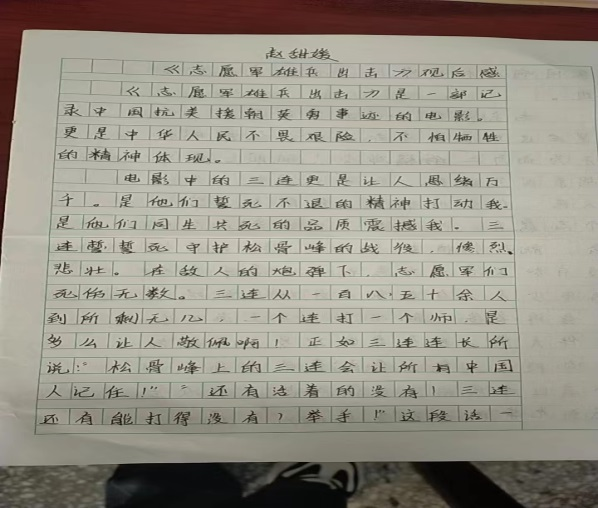 赵甜媛
《志愿军雄兵出击》观后感
《志愿军雄兵出击》是一部记
录中国抗美援朝英勇事迹的电影。
更是中华人民不畏艰险,不怕牺牲
的精神体现。
电影中的三连更是让人思绪万
千。是他们誓死不退的精神打动我.
是他们同生共死的品质震撼我。三
连誓誓死守护松骨峰的战役,惨烈.
悲壮。在敌人的炮弹下,志愿军们
死伤无数。三连从一百八.五十余人
到所剩无几,一个连打一个师,是
多么让人敬佩啊!正如三连连长所
说:“松骨峰上的三连会让所有中国
人记住!”“还有活着的没有!三连
还有能打得没有?举手!”这段话一